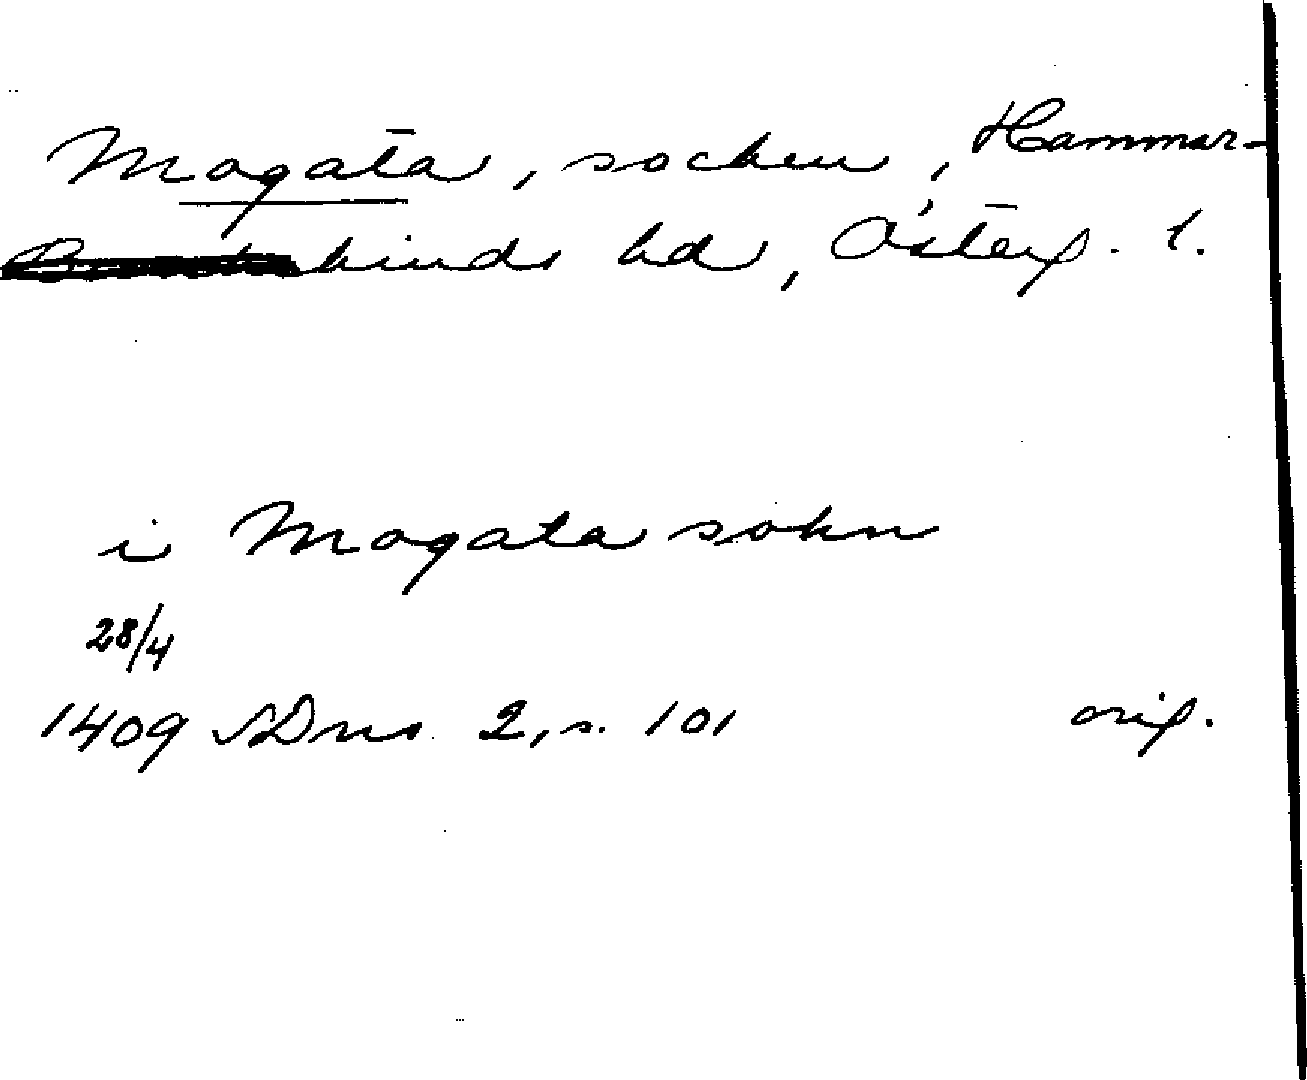 Mogata, socken, Hammar-
kinds hd, Österg. l.
i Mogata sokn
28/4
1409 SDns 2, s. 101 orig.